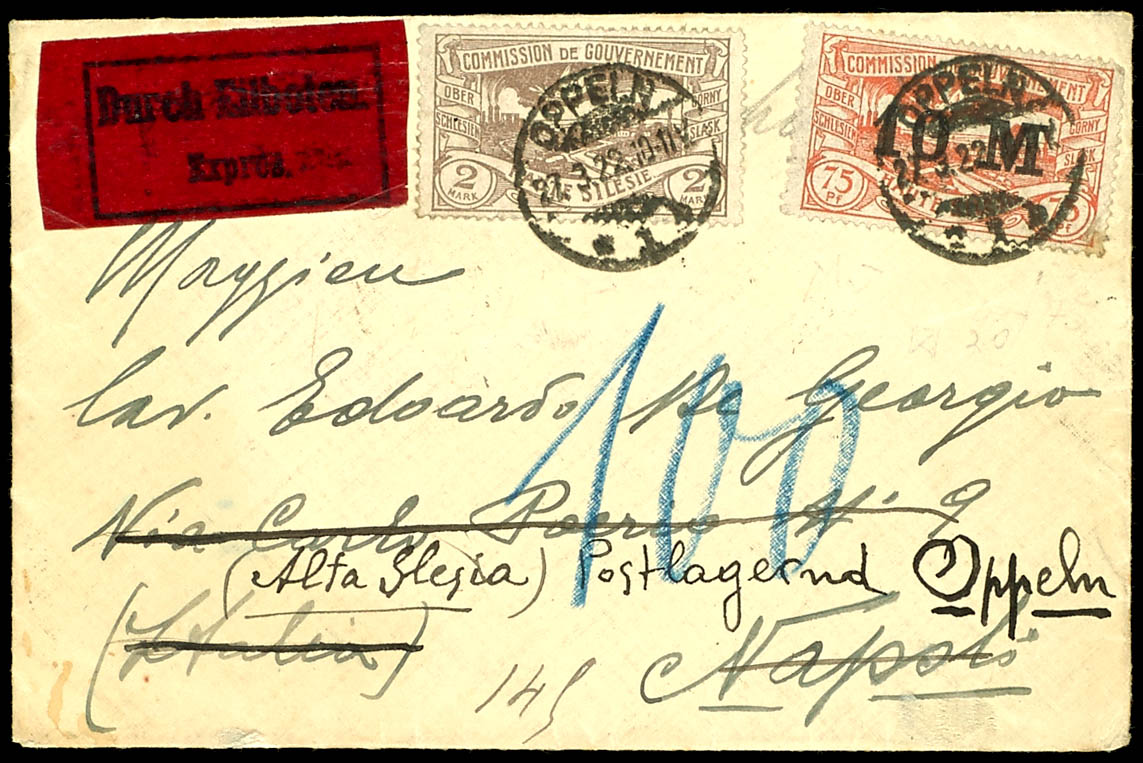 Durch Eilboten.
Exprès.
COMMISSION DE GOUVERNEMENT
OBER SCHLESIEN
GÓRNY ŚLĄSK
HAUTE SILESIE
2 MARK
2 MARK
OPPELN
22.3.22.10-11V
1
COMMISSION DE GOUVERNEMENT
OBER SCHLESIEN
GÓRNY ŚLĄSK
10 M
75 PF
75 PF
OPPELN
22.3.22
1
Cav. Edoardo De Georgio
100
Via Carlo Poerio N° 9
(Alta Slesia) Postlagernd Oppeln
(Italia)
Napoli
145
20